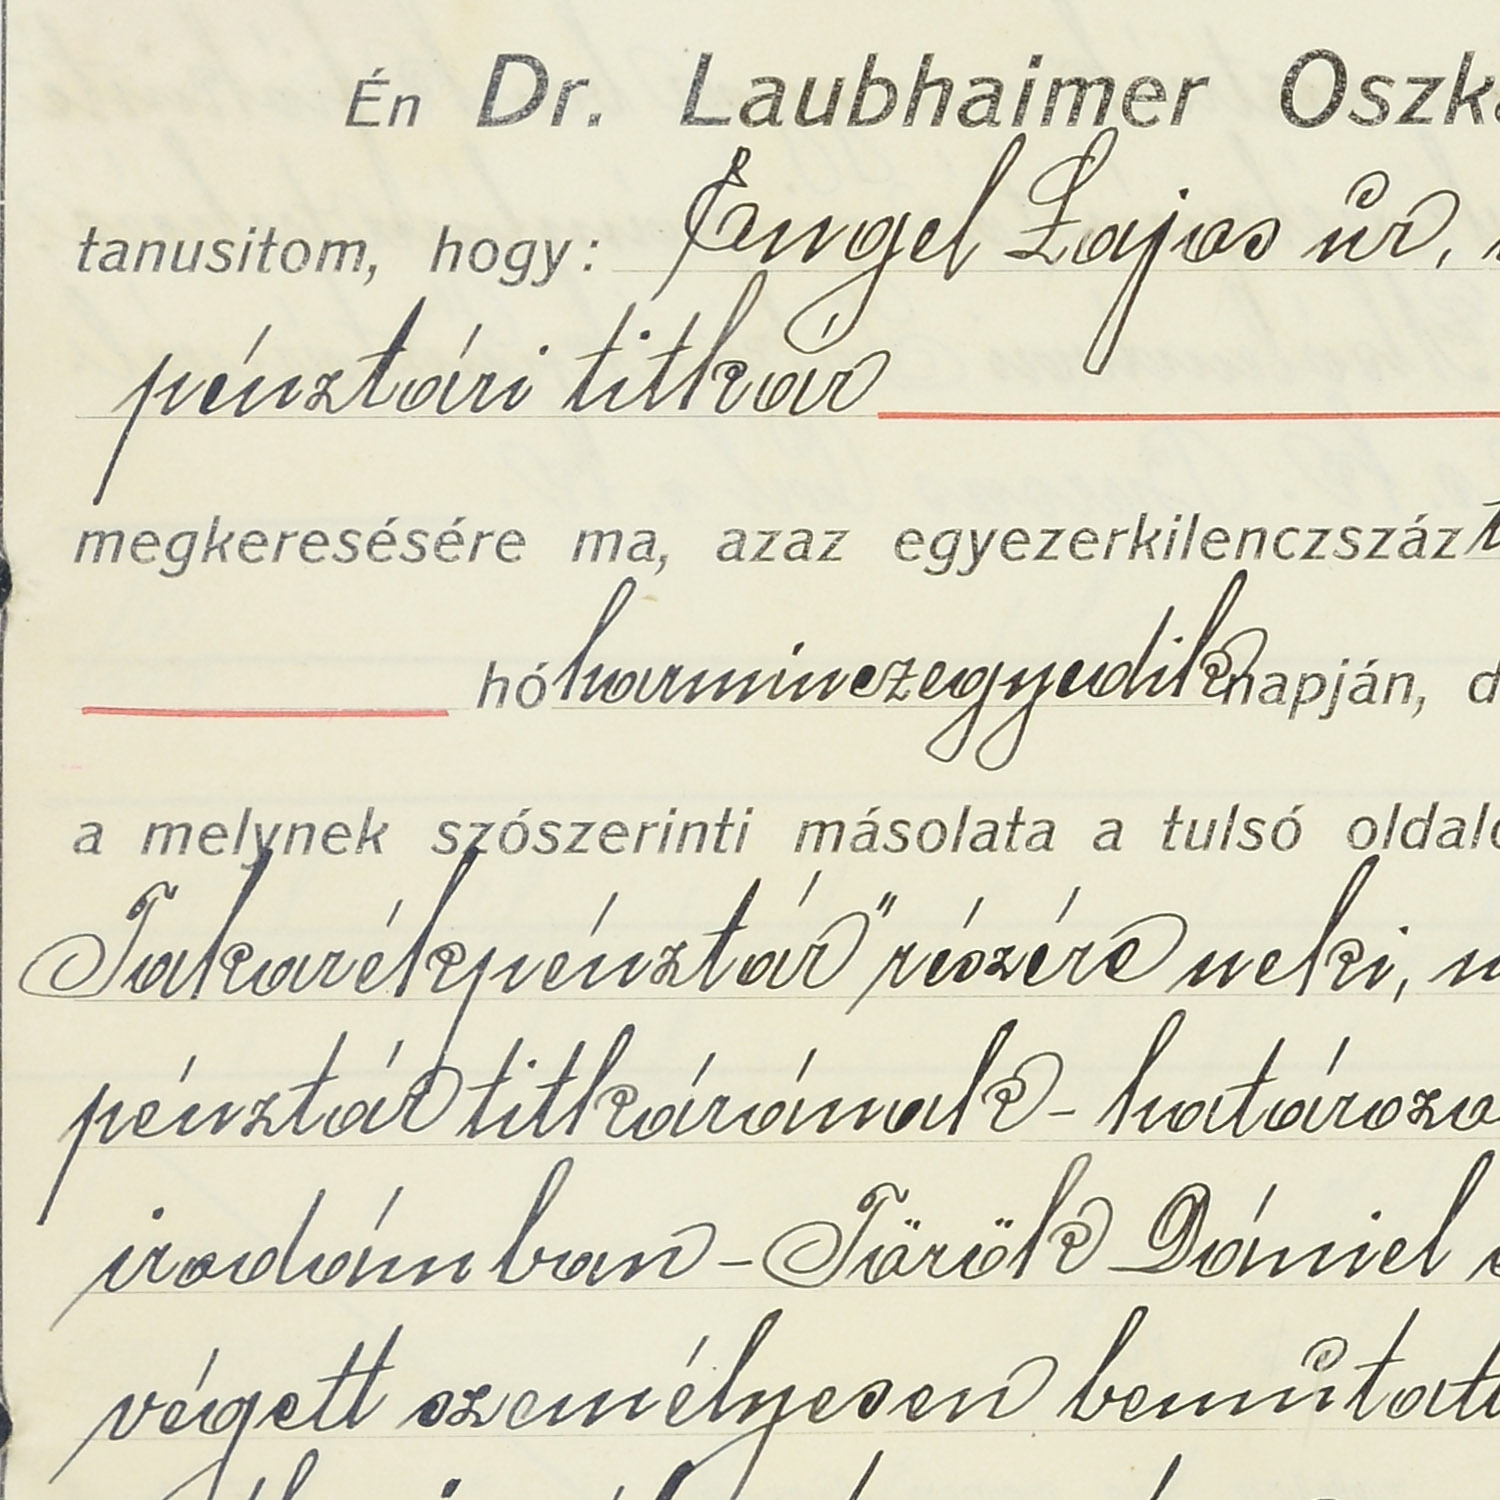 Én Dr. Laubhaimer Oszká
tanusitom, hogy: Engel Lajos úr,
pénztári titkár
megkeresésére ma, azaz egyezerkilenczszáz t
hó harminczegyedik napján, d
a melynek szószerinti másolata a tulsó oldalo
Takarékpénztár" részére neki, m
pénztár titkárának - határoza
irodámban - Török Dániel
végett személyesen bemutatt